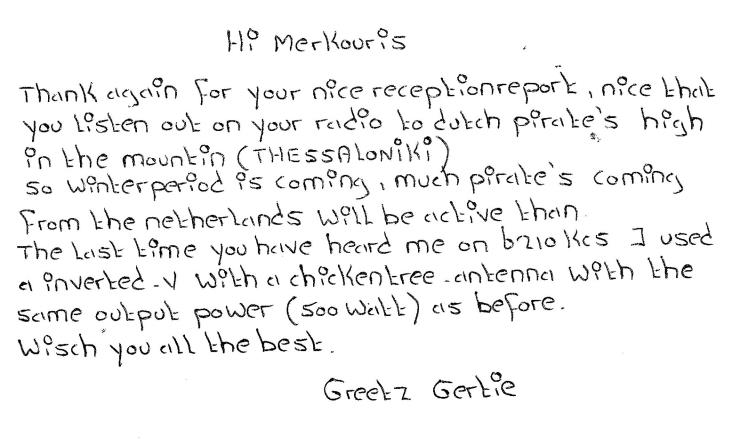 Hi Merkouris
Thank again for your nice receptionreport, nice that
you listen out on your radio to dutch pirate's high
in the mountin (THESSALONIKI)
so winterperiod is coming, much pirate's coming
from the netherlands will be active than.
The last time you have heard me on 6210 Kcs I used
a inverted-V with a chickentree-antenna with the
same output power (500 watt) as before.
Wisch you all the best.
Greetz Gertie